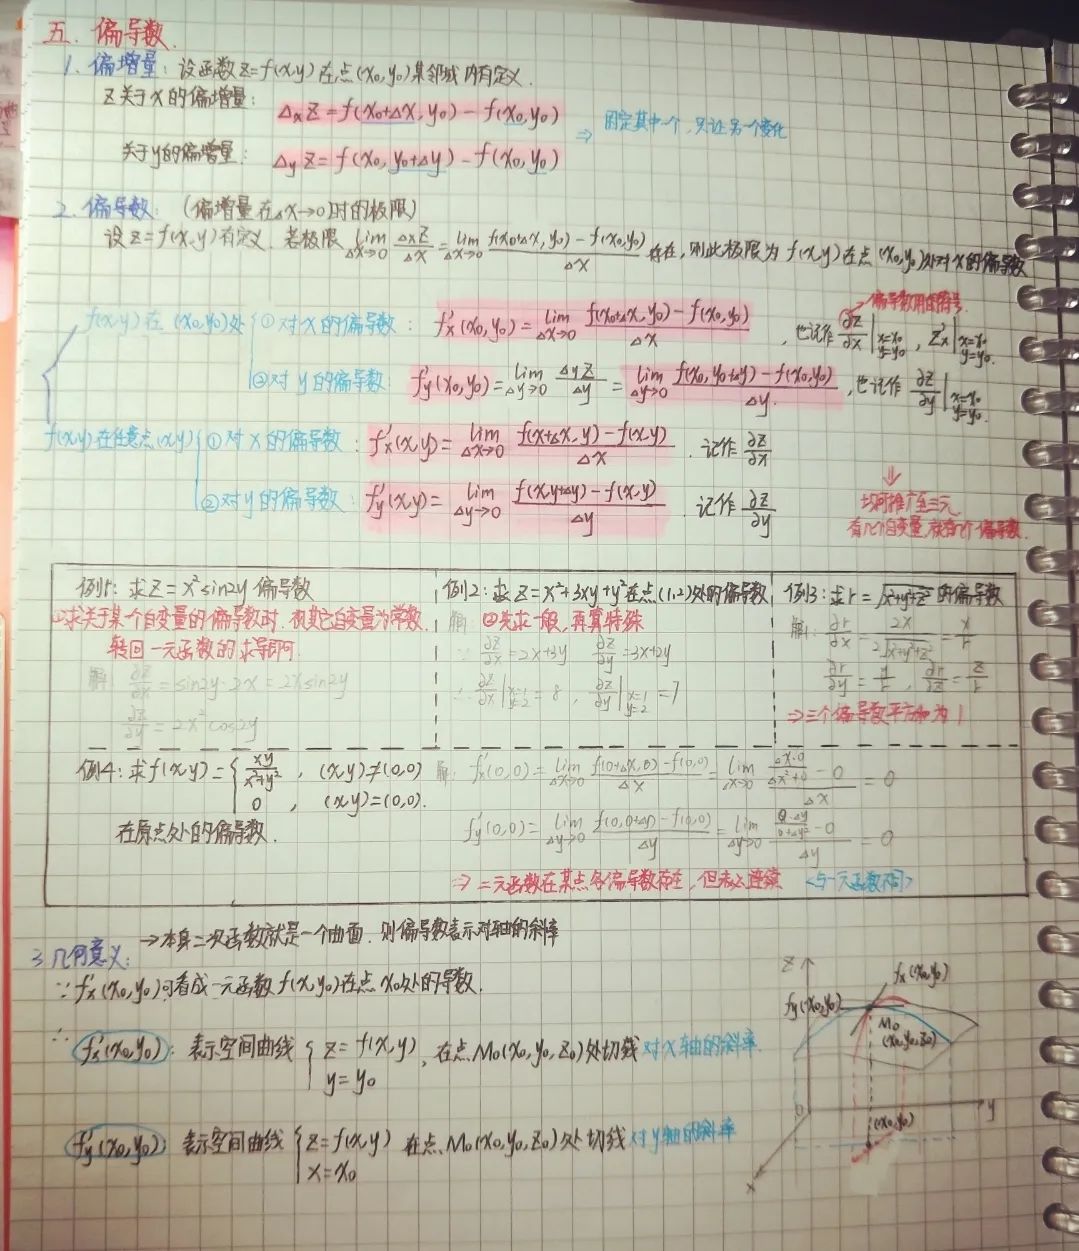 五、偏导数.
1. 偏增量: 设函数z=f(x,y)在点(x₀,y₀)某邻域内有定义.
z关于x的偏增量: Δₓz=f(x₀+Δx,y₀)-f(x₀,y₀)
⇒ 固定其中一个,只让另一个变化
关于y的偏增量: Δyz=f(x₀,y₀+Δy)-f(x₀,y₀)
2. 偏导数: (偏增量在Δx→0时的极限)
设z=f(x,y)有定义. 若极限 lim Δx→0 Δₓz/Δx = lim Δx→0 (f(x₀+Δx,y₀)-f(x₀,y₀))/Δx 存在,则此极限为f(x,y)在点(x₀,y₀)处对x的偏导数
偏导数用的符号.
f(x,y)在(x₀,y₀)处 ①对x的偏导数: f'ₓ(x₀,y₀)= lim Δx→0 (f(x₀+Δx,y₀)-f(x₀,y₀))/Δx , 也记作 ∂z/∂x|x=x₀ y=y₀ , z'ₓ|x=x₀ y=y₀.
②对y的偏导数: f'y(x₀,y₀)= lim Δy→0 Δyz/Δy = lim Δy→0 (f(x₀,y₀+Δy)-f(x₀,y₀))/Δy. , 也记作 ∂z/∂y|x=x₀ y=y₀
f(x,y)在任意点(x,y) ①对x的偏导数: f'ₓ(x,y)= lim Δx→0 (f(x+Δx,y)-f(x,y))/Δx . 记作 ∂z/∂x
②对y的偏导数: f'y(x,y)= lim Δy→0 (f(x,y+Δy)-f(x,y))/Δy . 记作 ∂z/∂y
⇓
均可推广至三元.
有几个自变量,就有几个偏导数.
例1: 求z=x²sin2y偏导数
①求关于某个自变量的偏导数时,视其它自变量为常数.
转回一元函数的求导即可.
解: ∂z/∂x = sin2y·2x = 2xsin2y
∂z/∂y = 2x²cos2y
例2: 求z=x²+3xy+y²在点(1,2)处的偏导数
解: ②先求一般,再算特殊
∵ ∂z/∂x=2x+3y ∂z/∂y=3x+2y
∴ ∂z/∂x|x=1 y=2 = 8 , ∂z/∂y|x=1 y=2 = 7
例3: 求r=√(x²+y²+z²)的偏导数
解: ∂r/∂x = 2x/(2√(x²+y²+z²)) = x/r
∂r/∂y = y/r , ∂r/∂z = z/r
⇒三个偏导数平方和为1
例4: 求f(x,y)={ xy/(x²+y²) , (x,y)≠(0,0)
0 , (x,y)=(0,0).
在原点处的偏导数.
解: f'ₓ(0,0)= lim Δx→0 (f(0+Δx,0)-f(0,0))/Δx = lim Δx→0 (Δx·0/(Δx²+0)-0)/Δx = 0
f'y(0,0)= lim Δy→0 (f(0,0+Δy)-f(0,0))/Δy = lim Δy→0 (0·Δy/(0+Δy²)-0)/Δy = 0
⇒ 二元函数在某点各偏导数存在,但未必连续 <与一元函数不同>
→本身二次函数就是一个曲面,则偏导数表示对轴的斜率
3.几何意义:
∵ f'ₓ(x₀,y₀)可看成一元函数f(x,y₀)在点x₀处的导数.
∴
f'ₓ(x₀,y₀): 表示空间曲线 { z=f(x,y) , 在点M₀(x₀,y₀,z₀)处切线对x轴的斜率.
y=y₀
f'y(x₀,y₀) 表示空间曲线 { z=f(x,y) 在点M₀(x₀,y₀,z₀)处切线对y轴的斜率
x=x₀
z
fₓ(x₀,y₀)
fy(x₀,y₀)
M₀
(x₀,y₀,z₀)
0
y
(x₀,y₀)
x